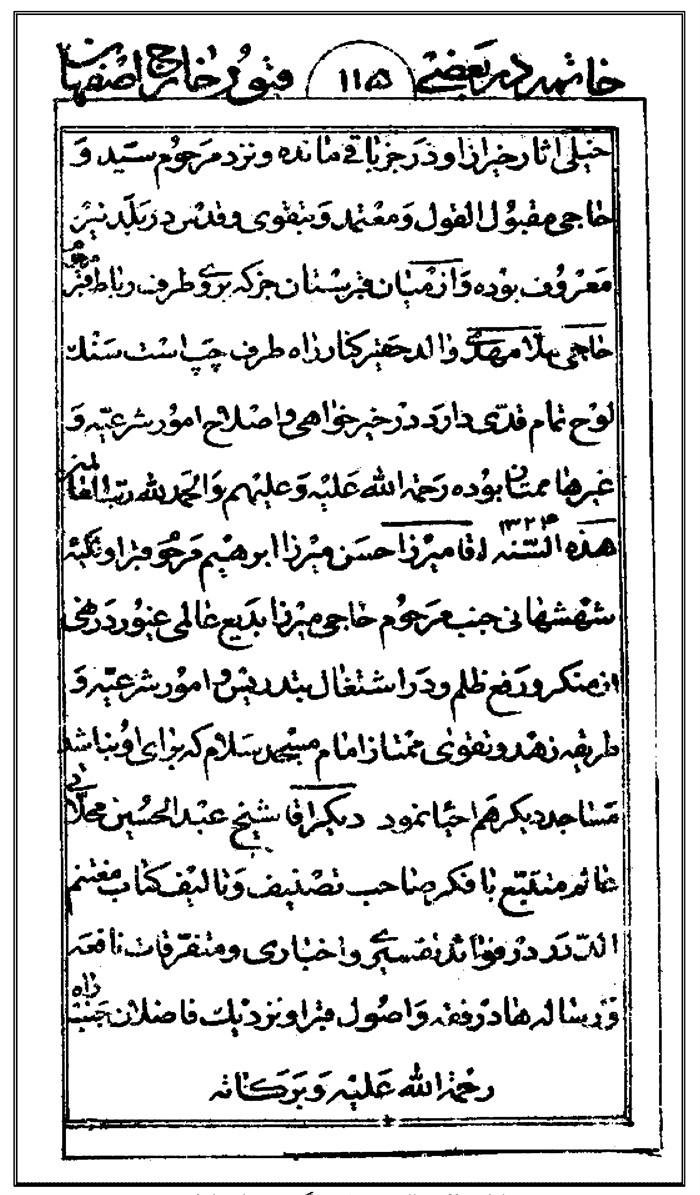 خاتمه در بعضی ۱۱۵ قبور خارج اصفهان
خیلی اثار خیر از او در جز باقی مانده و نزد مرحوم سید و
حاجی مقبول القول و معتمد و بتقوی و قدس در بلد نیز
معروف بوده و از میان قبرستان جز که بروی طرف رباط قبر مرحوم
حاجی ملا مهدی والد حقیر کنار راه طرف چپ است سنک
لوح تمام قدی دارد در خیر خواهی و اصلاح امور شرعیه و
غیرها ممتاز بوده رحمة الله علیه و علیهم والحمد لله رب العالمین
هذه السنه ۱۳۲۴ اقا میرزا حسن میرزا ابوهیم مرحوم قبر او تکیه
شهشهانی جنب مرحوم حاجی میرزا بدیع عالمی غیور در نهی
از منکر و رفع ظلم و در اشتغال بتدریس و امور شرعیه و
طریقه زهد و تقوی ممتاز امام مسجد سلام که برای او بنا شد
مساجد دیکر هم احیا نمود دیکر اقا شیخ عبد الحسین محلاتی
عالم متتبع با فکر صاحب تصنیف و تالیف کتاب مغتنم
الدرر در فوائد تفسیری و اخباری و متفرقات نافعه
و رساله ها در فقه و اصول قبر او نزدیک فاضلان جنب راه
رحمة الله علیه و برکاته